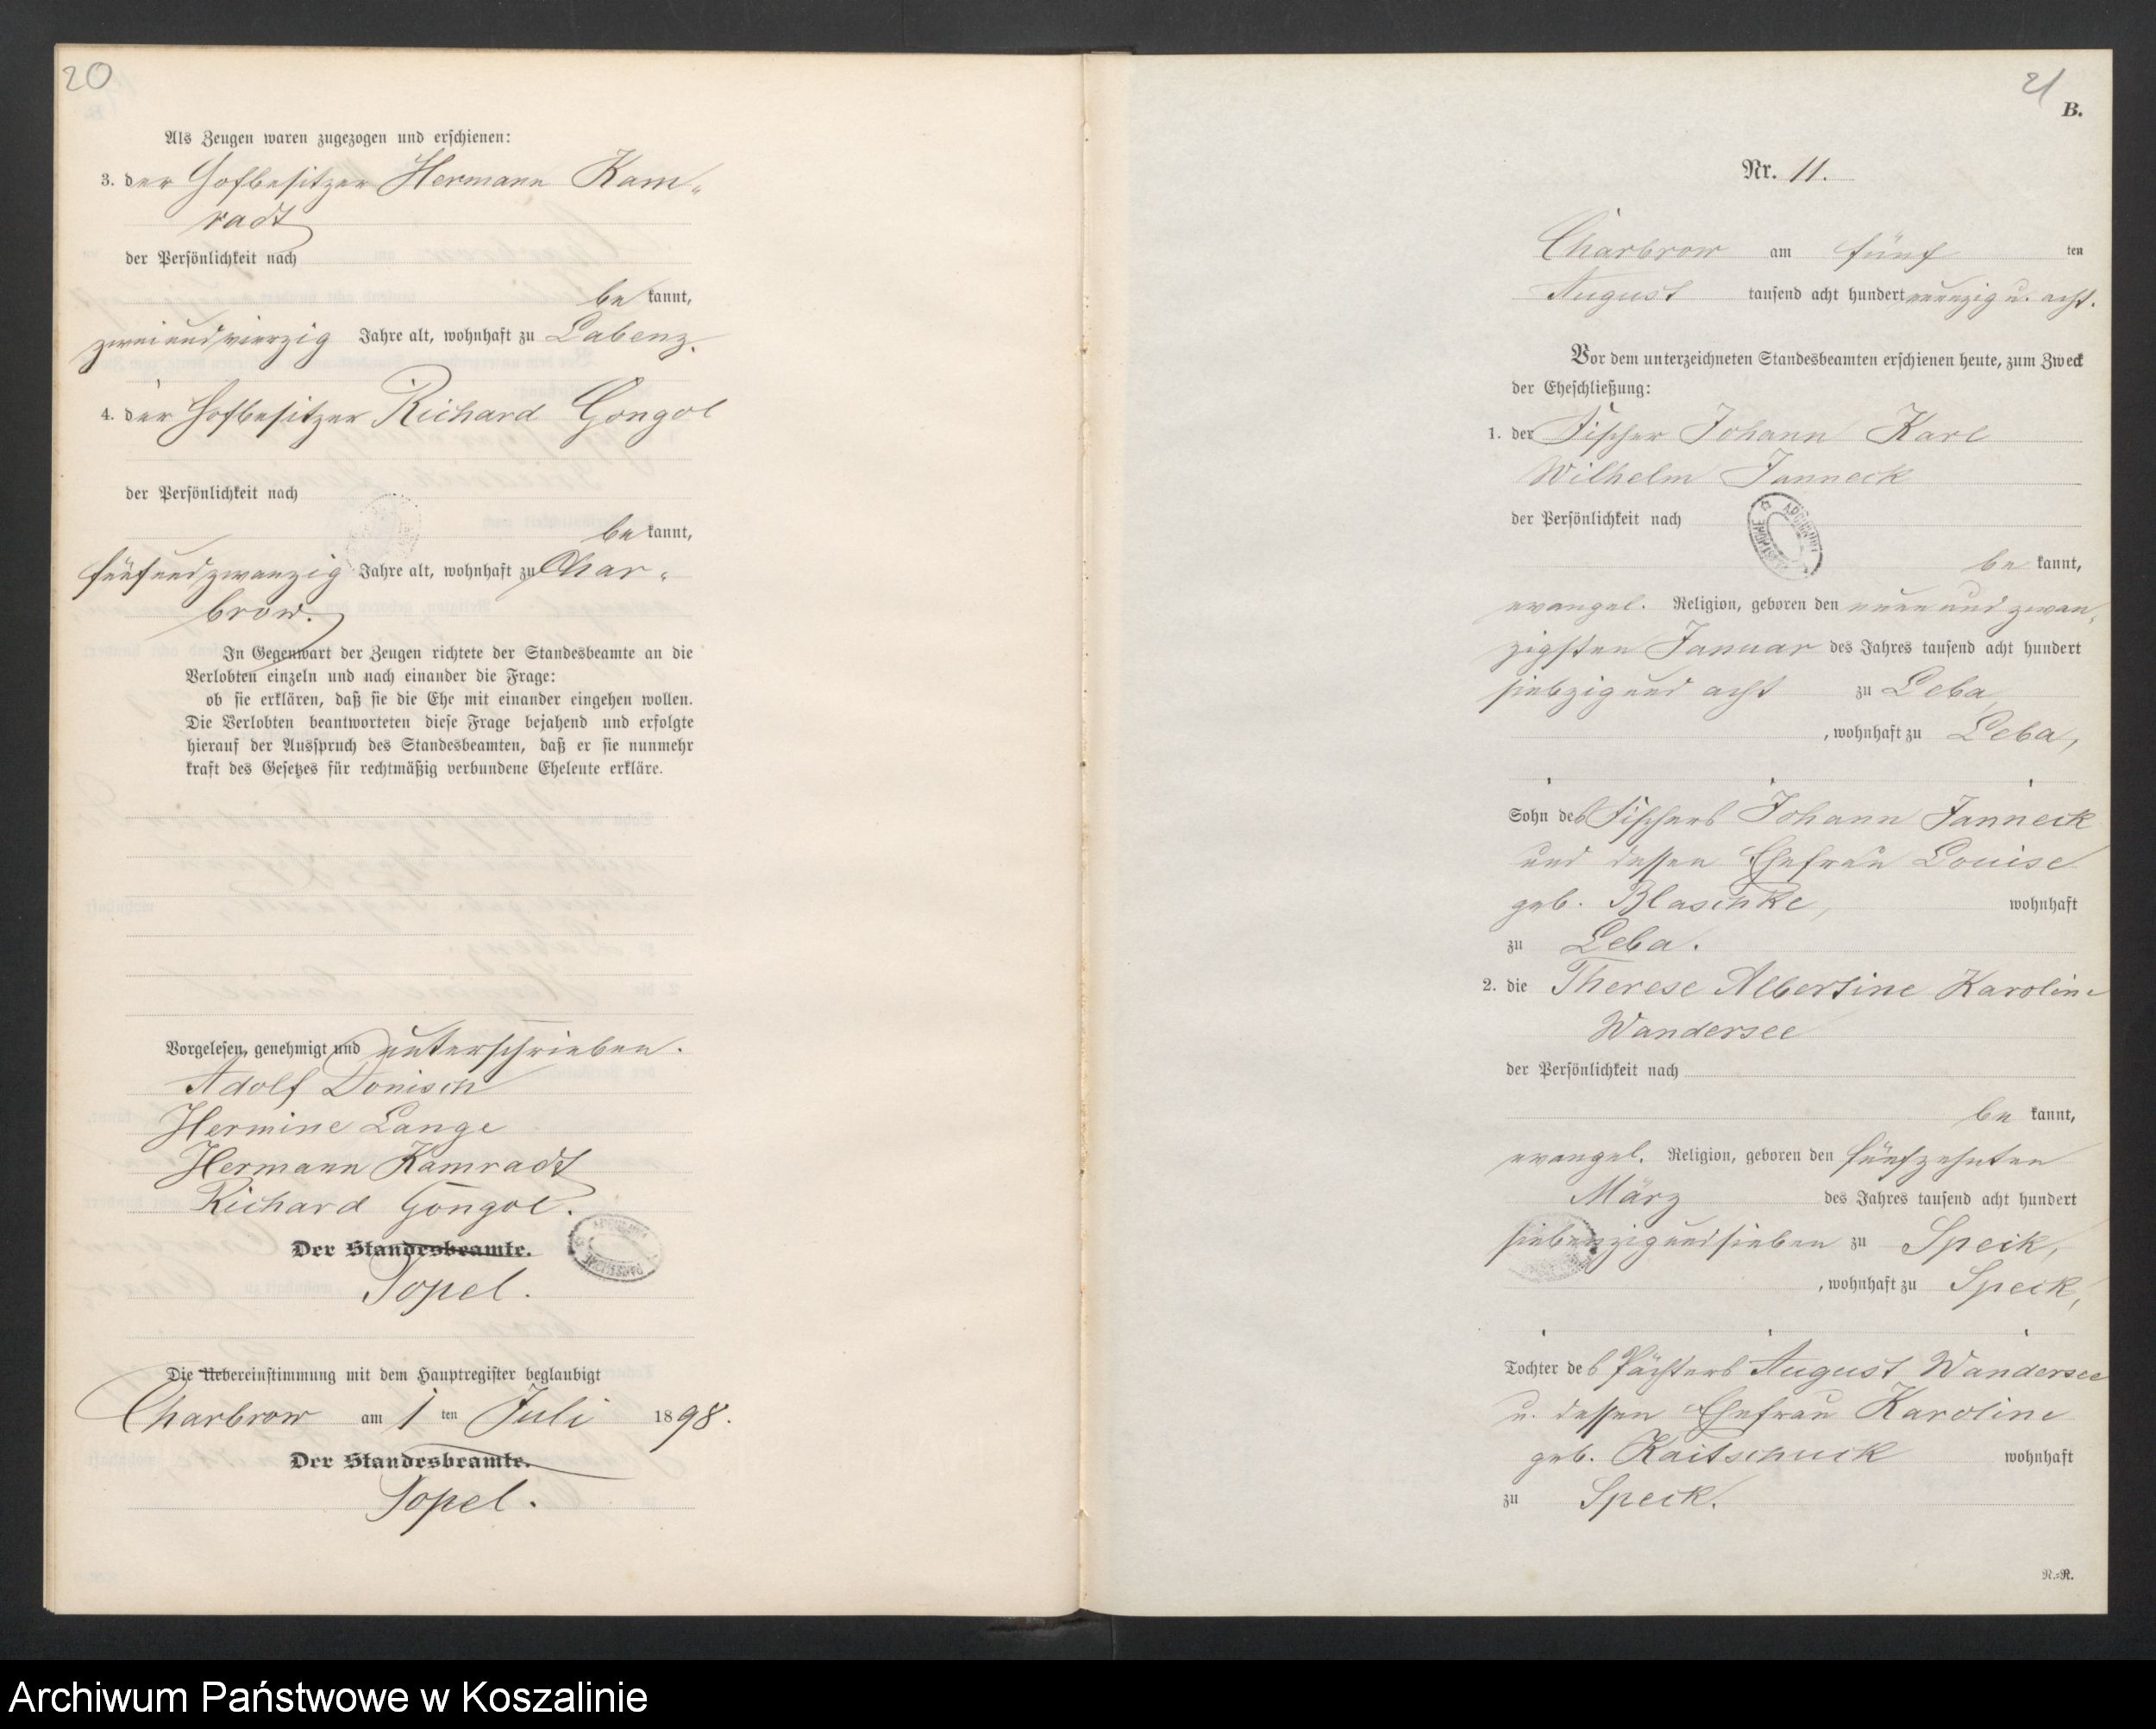 20
Als Zeugen waren zugezogen und erschienen:
3. der Hofbesitzer Hermann Kam-
radt
der Persönlichkeit nach
be kannt,
zweiundvierzig Jahre alt, wohnhaft zu Labenz.
4. der Hofbesitzer Richard Gongol
der Persönlichkeit nach
be kannt,
fünfundzwanzig Jahre alt, wohnhaft zu Char-
brow.
In Gegenwart der Zeugen richtete der Standesbeamte an die
Verlobten einzeln und nach einander die Frage:
ob sie erklären, daß sie die Ehe mit einander eingehen wollen.
Die Verlobten beantworteten diese Frage bejahend und erfolgte
hierauf der Ausspruch des Standesbeamten, daß er sie nunmehr
kraft des Gesetzes für rechtmäßig verbundene Eheleute erkläre.
Vorgelesen, genehmigt und unterschrieben.
Adolf Donisch
Hermine Lange
Hermann Kamradt
Richard Gongol.
Der Standesbeamte.
Sopel.
Die Uebereinstimmung mit dem Hauptregister beglaubigt
Charbrow am 1 ten Juli 1898.
Der Standesbeamte.
Sopel.
21
B.
Nr. 11.
Charbrow am fünf ten
August tausend acht hundert neunzig u. acht.
Vor dem unterzeichneten Standesbeamten erschienen heute, zum Zweck
der Eheschließung:
1. der Fischer Johann Karl
Wilhelm Janneck
der Persönlichkeit nach
be kannt,
evangel. Religion, geboren den neun und zwan-
zigsten Januar des Jahres tausend acht hundert
siebzig und acht zu Leba
, wohnhaft zu Leba,
Sohn des Fischers Johann Janneck
und dessen Ehefrau Louise
geb. Blaschke, wohnhaft
zu Leba.
2. die Therese Albertine Karoline
Wandersee
der Persönlichkeit nach
be kannt,
evangel. Religion, geboren den fünfzehnten
März des Jahres tausend acht hundert
siebenzig und sieben zu Speck,
, wohnhaft zu Speck,
Tochter des Pächters August Wandersee
u. dessen Ehefrau Karoline
geb. Kaitschuck wohnhaft
zu Speck.
R.-R.
Archiwum Państwowe w Koszalinie